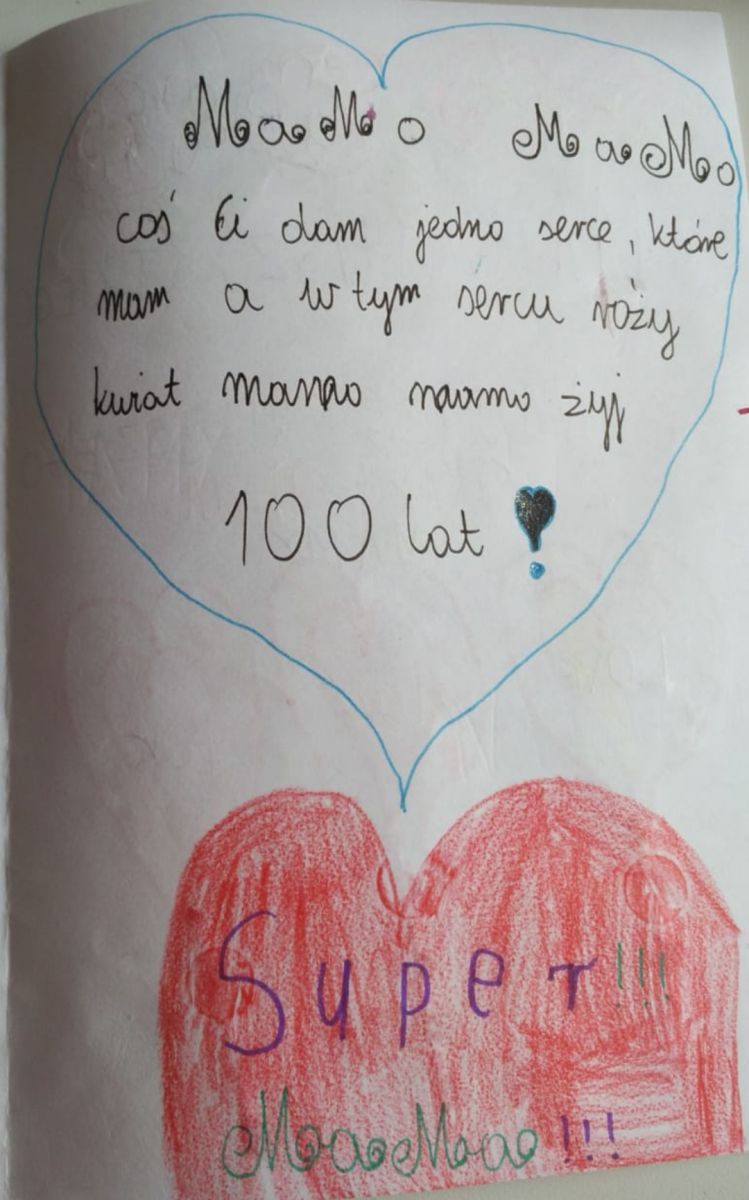 MaMo MaMo
coś Ci dam jedno serce, które
mam a w tym sercu róży
kwiat mamo mamo żyj
100 lat!
Super!!!
MaMa!!!